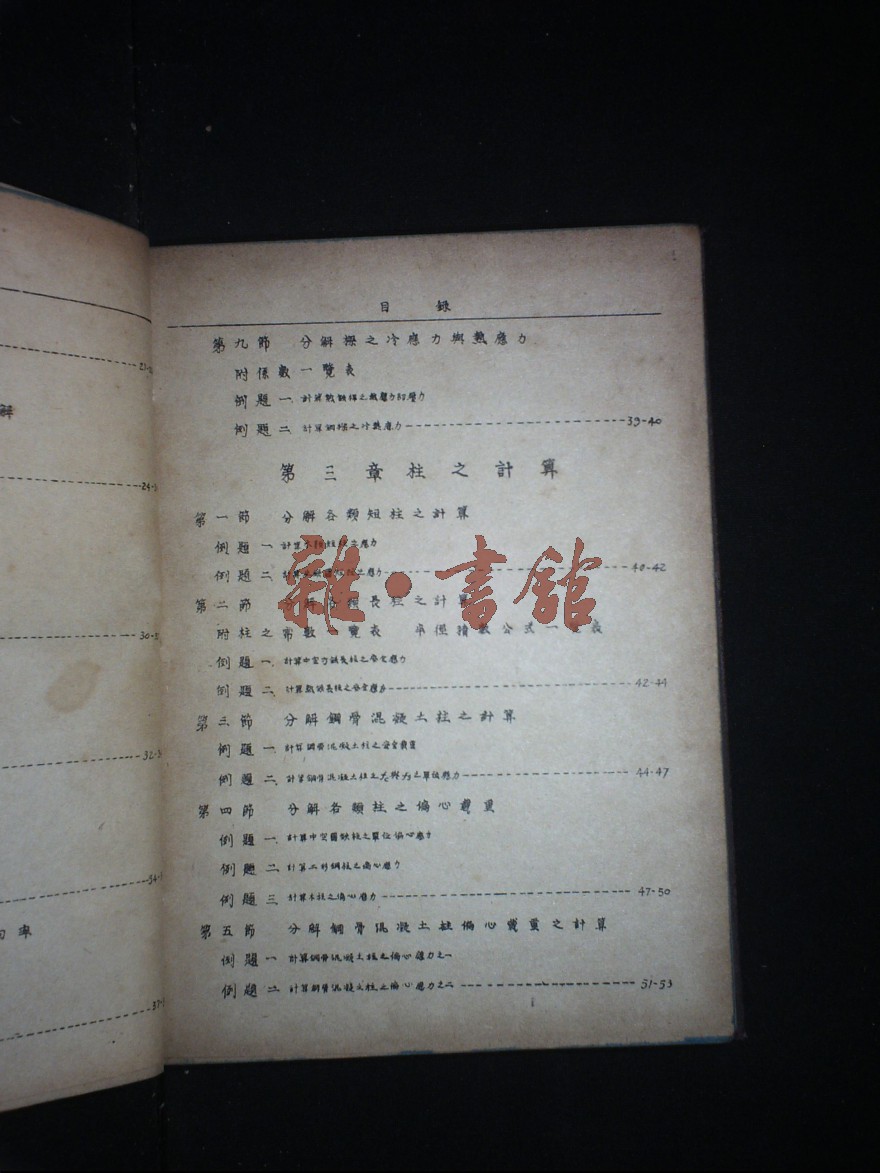 解
的率
21-2
24-
30-
32-3
34-
37-
目 錄
第九節 分解樑之冷應力與熱應力
附係數一覽表
例題一.
例題二. 計算鋼樑之冷熱應力 39-40
第三章柱之計算
第一節 分解各類短柱之計算
例題一. 計算木短柱之應力
例題二. 之應力 40-42
第二節 分解各類長柱之計算
附柱之常數一覽表 率徑積數公式一覽表
例題一. 計算中空方鐵長柱之安全應力
例題二. 計算長柱之安全應力 42-44
第三節 分解鋼骨混凝土柱之計算
例題一. 計算鋼骨混凝土柱之安全載重
例題二. 計算鋼骨混凝土柱之 與 之單位應力 44-47
第四節 分解各類柱之偏心載重
例題一. 計算中空圓鐵柱之單位偏心應力
例題二. 計算工形鋼柱之偏心應力
例題三. 計算木柱之偏心應力 47-50
第五節 分解鋼骨混凝土柱偏心載重之計算
例題一. 計算鋼骨混凝土柱之偏心應力之一
例題二. 計算鋼骨混凝土柱之偏心應力之二 51-53
雜·書館